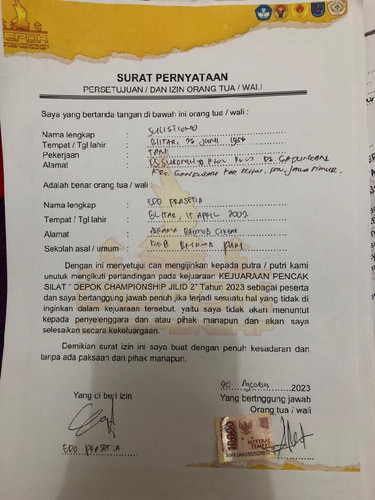 DEPOK
SURAT PERNYATAAN
PERSETUJUAN / DAN IZIN ORANG TUA / WALI
Saya yang bertanda tangan di bawah ini orang tua / wali :
Nama lengkap : SULISTIONO
Tempat / Tgl lahir : BLITAR, JUNI
Pekerjaan : TANI
Alamat :
KEC. GANDUSARI JAWA TIMUR.
Adalah benar orang tua / wali :
Nama lengkap : EDO PRASETIA
Tempat / Tgl lahir : BLITAR, 15 APRIL 2002
Alamat : ASRAMA
Sekolah asal / umum :
Dengan ini menyetujui dan mengijinkan kepada putera / putri kami
unutuk mengikuti pertandingan pada kejuaraan KEJUARAAN PENCAK
SILAT " DEPOK CHAMPIONSHIP JILID 2" Tahun 2023 sebagai peserta
dan saya bertanggung jawab penuh jika terjadi sesuatu hal yang tidak di
inginkan dalam kejuaraan tersebut, yaitu saya tidak akan menuntut
kepada penyelenggara dan atau pihak manapun dan akan saya
selesaikan secara kekeluargaan.
Demikian surat izin ini saya buat dengan penuh kesadaran dan
tanpa ada paksaan dari pihak manapun.
20 Agustus 2023
Yang di beri izin
Yang bertnggung jawab
Orang tua / wali
10000
METERAI
TEMPEL
EDO PRASETIA